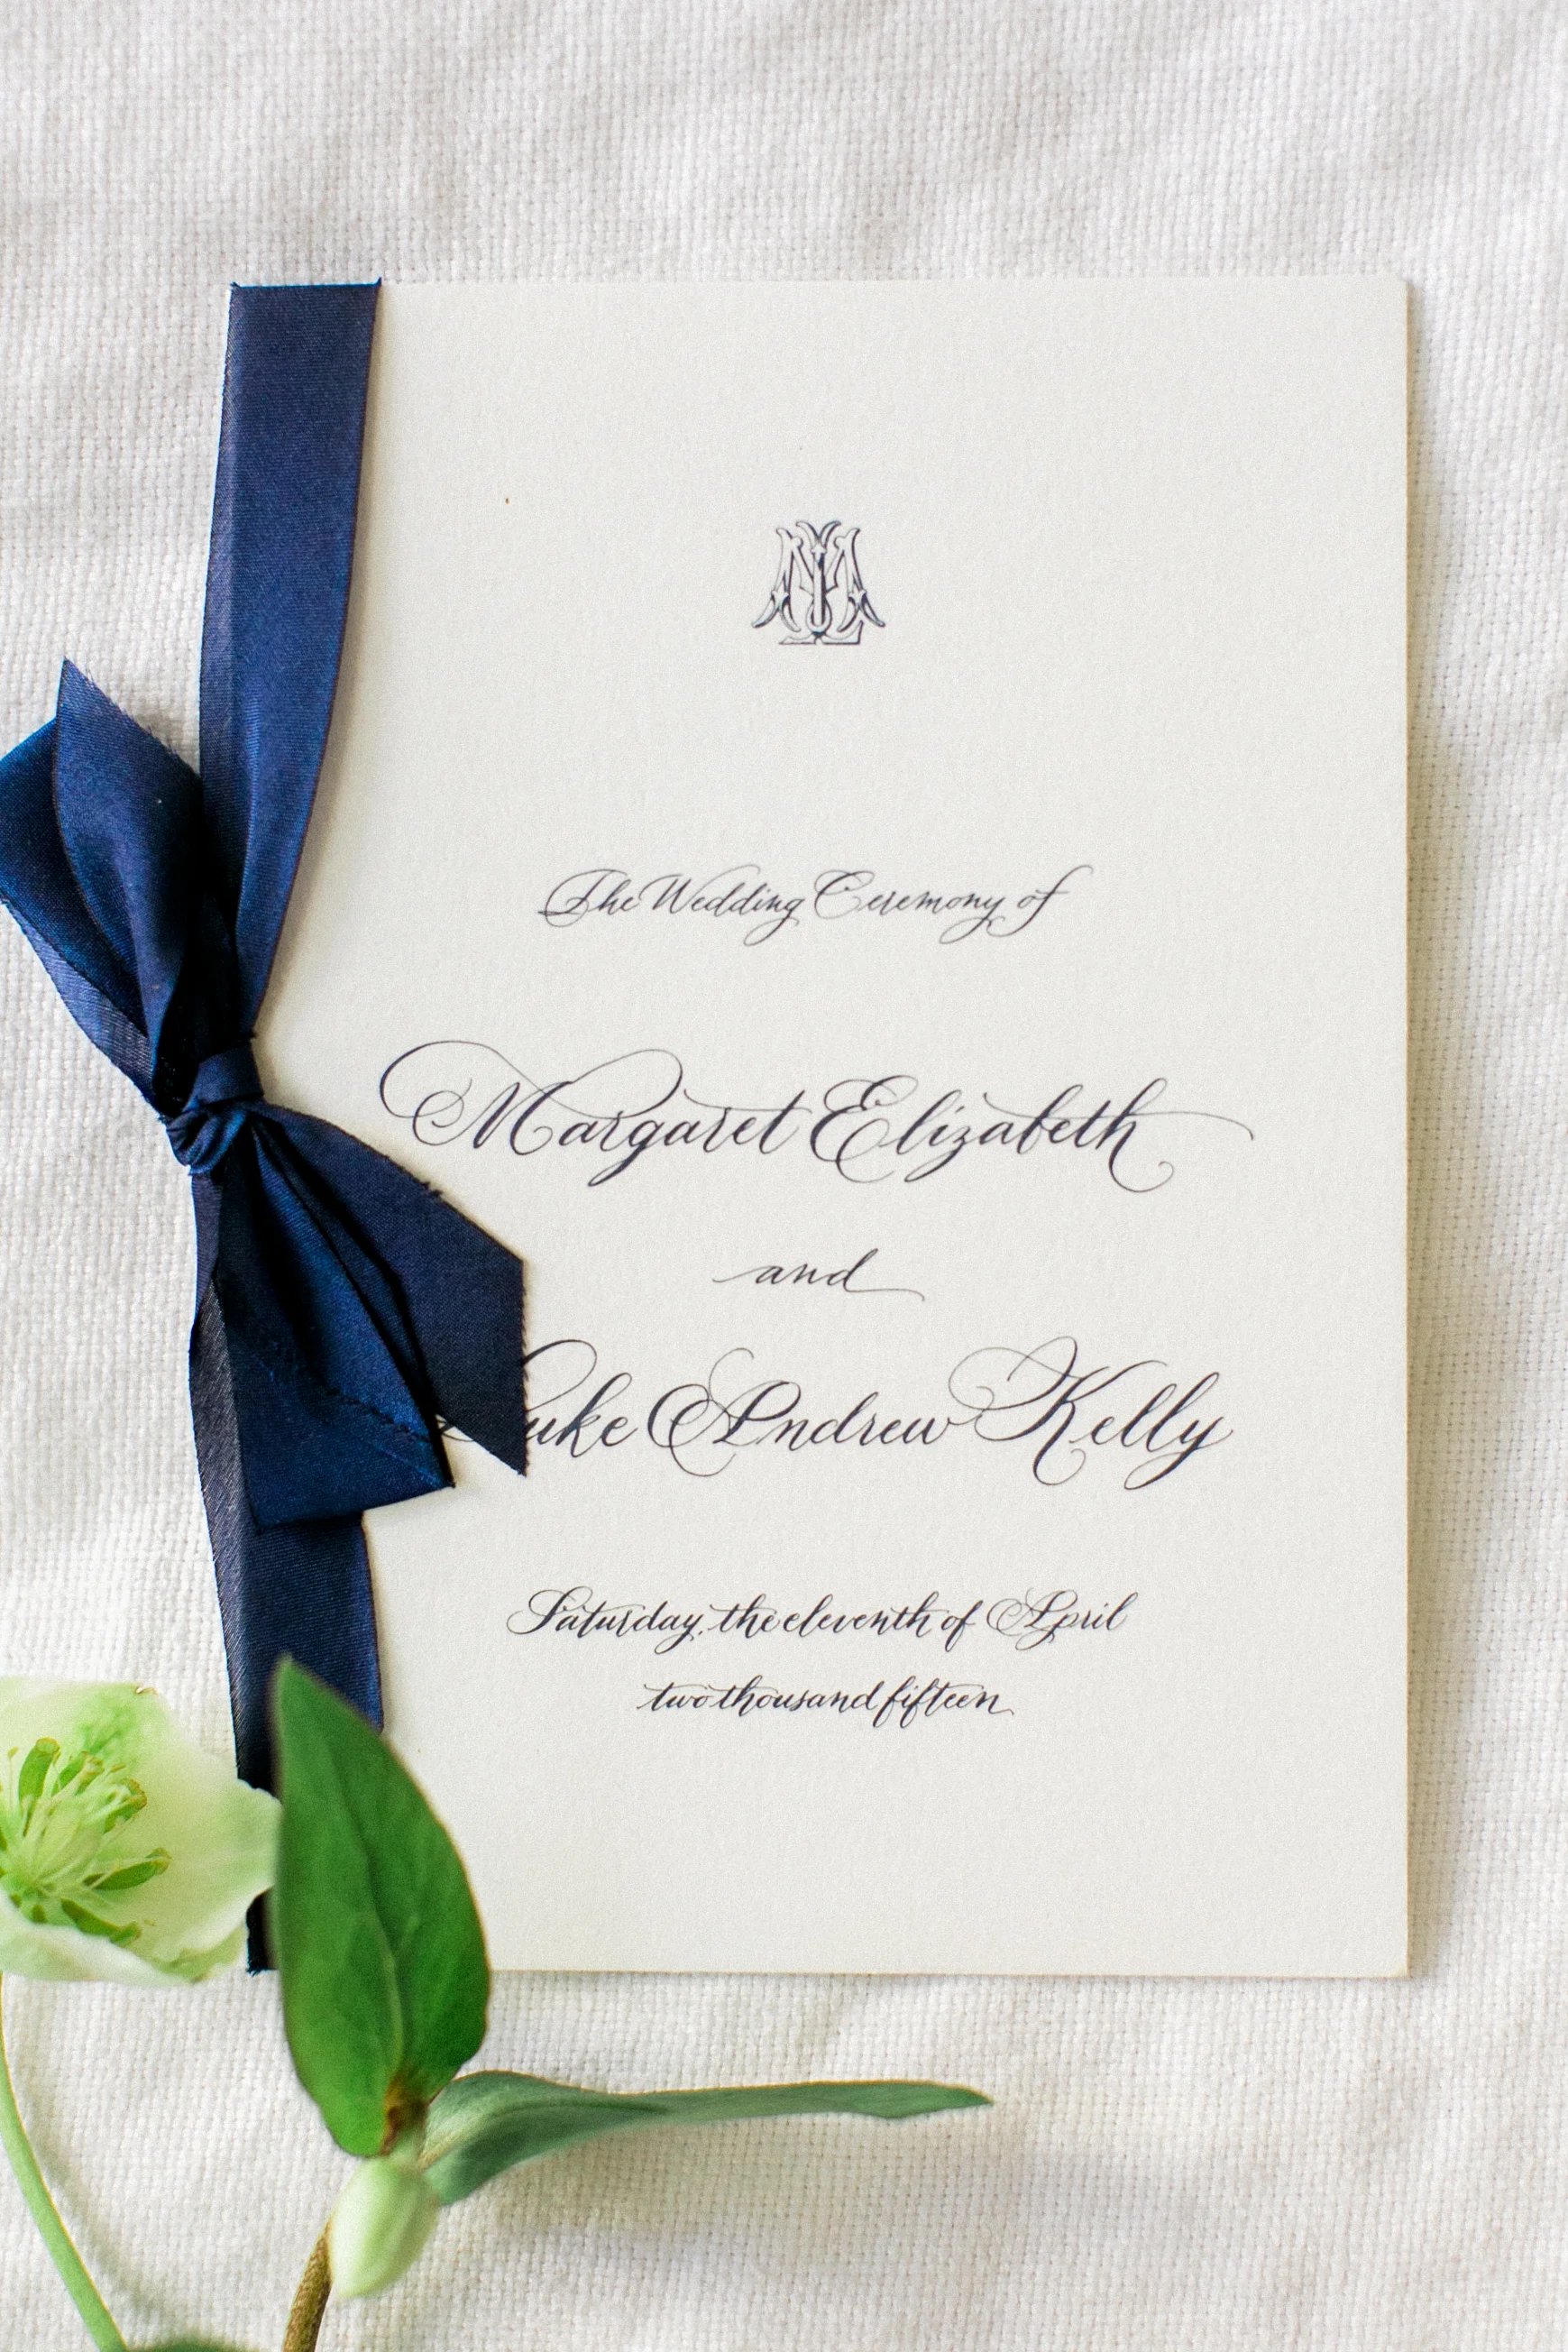 ML
The Wedding Ceremony of
Margaret Elizabeth
and
Luke Andrew Kelly
Saturday, the eleventh of April
two thousand fifteen